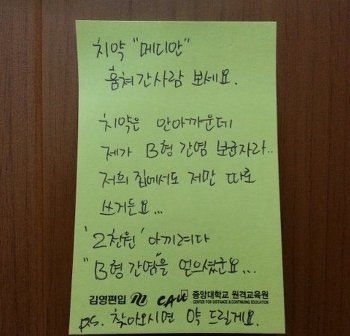 치약 "메디안"
훔쳐간사람 보세요.
치약은 안아까운데
제가 B형 간염 보균자라..
저희 집에서도 저만 따로
쓰거든요...
'2천원' 아끼려다
"B형 간염"을 얻으셨군요...
김영편입 CAU 중앙대학교 원격교육원
CENTER FOR DISTANCE & CONTINUING EDUCATION
ps. 찾아오시면 약 드릴게요.